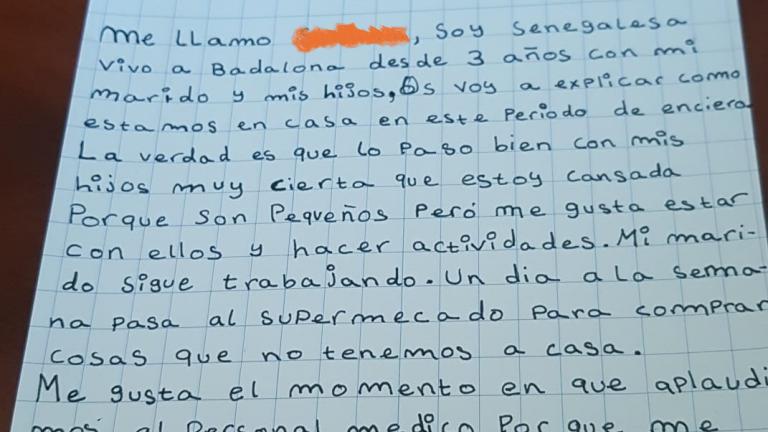 Me LLamo , Soy Senegalesa
vivo a Badalona desde 3 años con mi
marido y mis hijos, Os voy a explicar como
estamos en casa en este Periodo de enciera
La verdad es que lo Paso bien con mis
hijos muy cierta que estoy cansada
Porque son Pequeños Peró me gusta estar
con ellos y hacer actividades. Mi mari-
do sigue trabajando. Un dia a la sema-
na pasa al supermecado para comprar
cosas que no tenemos a casa.
Me gusta el momento en que aplaudi
mos al Personal medico Porque me